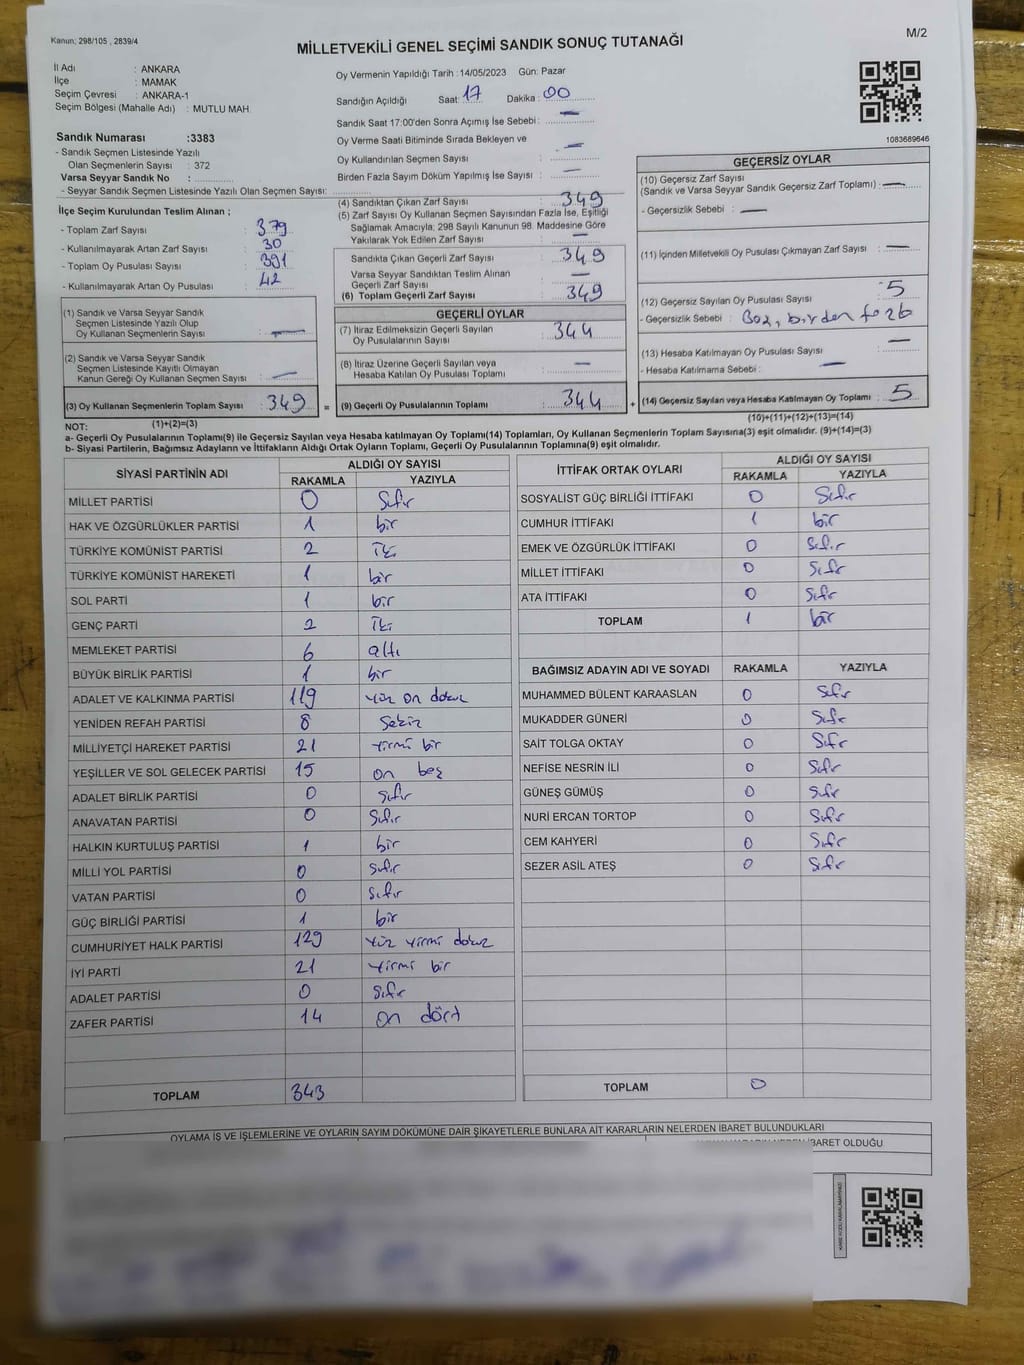 Kanun: 298/105 , 2839/4
M/2
MİLLETVEKİLİ GENEL SEÇİMİ SANDIK SONUÇ TUTANAĞI
İl Adı : ANKARA
İlçe : MAMAK
Seçim Çevresi : ANKARA-1
Seçim Bölgesi (Mahalle Adı) : MUTLU MAH.
Sandık Numarası :3383
- Sandık Seçmen Listesinde Yazılı
Olan Seçmenlerin Sayısı : 372
Varsa Seyyar Sandık No :
- Seyyar Sandık Seçmen Listesinde Yazılı Olan Seçmen Sayısı:
Oy Vermenin Yapıldığı Tarih :14/05/2023 Gün: Pazar
Sandığın Açıldığı Saat: 17 Dakika : 00
Sandık Saat 17:00'den Sonra Açımış İse Sebebi : —
Oy Verme Saati Bitiminde Sırada Bekleyen ve
Oy Kullandırılan Seçmen Sayısı : —
Birden Fazla Sayım Döküm Yapılmış İse Sayısı : —
1083689646
İlçe Seçim Kurulundan Teslim Alınan ;
- Toplam Zarf Sayısı : 379
- Kullanılmayarak Artan Zarf Sayısı : 30
- Toplam Oy Pusulası Sayısı : 391
- Kullanılmayarak Artan Oy Pusulası : 42
(1) Sandık ve Varsa Seyyar Sandık
Seçmen Listesinde Yazılı Olup
Oy Kullanan Seçmenlerin Sayısı : —
(2) Sandık ve Varsa Seyyar Sandık
Seçmen Listesinde Kayıtlı Olmayan
Kanun Gereği Oy Kullanan Seçmen Sayısı : —
(3) Oy Kullanan Seçmenlerin Toplam Sayısı : 349 =
(1)+(2)=(3)
(4) Sandıktan Çıkan Zarf Sayısı : 349
(5) Zarf Sayısı Oy Kullanan Seçmen Sayısından Fazla İse, Eşitliği
Sağlamak Amacıyla, 298 Sayılı Kanunun 98. Maddesine Göre
Yakılarak Yok Edilen Zarf Sayısı : —
Sandıkta Çıkan Geçerli Zarf Sayısı : 349
Varsa Seyyar Sandıktan Teslim Alınan
Geçerli Zarf Sayısı : —
(6) Toplam Geçerli Zarf Sayısı : 349
GEÇERLİ OYLAR
(7) İtiraz Edilmeksizin Geçerli Sayılan
Oy Pusulalarının Sayısı : 344
(8) İtiraz Üzerine Geçerli Sayılan veya
Hesaba Katılan Oy Pusulası Toplamı : —
(9) Geçerli Oy Pusulalarının Toplamı : 344 +
GEÇERSİZ OYLAR
(10) Geçersiz Zarf Sayısı
(Sandık ve Varsa Seyyar Sandık Geçersiz Zarf Toplamı) : —
- Geçersizlik Sebebi : —
(11) İçinden Milletvekili Oy Pusulası Çıkmayan Zarf Sayısı : —
(12) Geçersiz Sayılan Oy Pusulası Sayısı : 5
- Geçersizlik Sebebi : Boş, birden fazla
(13) Hesaba Katılmayan Oy Pusulası Sayısı : —
- Hesaba Katılmama Sebebi : —
(14) Geçersiz Sayılan veya Hesaba Katılmayan Oy Toplamı : 5
(10)+(11)+(12)+(13)=(14)
NOT:
a- Geçerli Oy Pusulalarının Toplamı(9) ile Geçersiz Sayılan veya Hesaba katılmayan Oy Toplamı(14) Toplamları, Oy Kullanan Seçmenlerin Toplam Sayısına(3) eşit olmalıdır. (9)+(14)=(3)
b- Siyasi Partilerin, Bağımsız Adayların ve İttifakların Aldığı Ortak Oyların Toplamı, Geçerli Oy Pusulalarının Toplamına(9) eşit olmalıdır.
SİYASİ PARTİNİN ADI ALDIĞI OY SAYISI
RAKAMLA YAZIYLA
MİLLET PARTİSİ 0 Sıfır
HAK VE ÖZGÜRLÜKLER PARTİSİ 1 bir
TÜRKİYE KOMÜNİST PARTİSİ 2 İki
TÜRKİYE KOMÜNİST HAREKETİ 1 bir
SOL PARTİ 1 bir
GENÇ PARTİ 2 İki
MEMLEKET PARTİSİ 6 altı
BÜYÜK BİRLİK PARTİSİ 1 bir
ADALET VE KALKINMA PARTİSİ 119 yüz on dokuz
YENİDEN REFAH PARTİSİ 8 sekiz
MİLLİYETÇİ HAREKET PARTİSİ 21 yirmi bir
YEŞİLLER VE SOL GELECEK PARTİSİ 15 on beş
ADALET BİRLİK PARTİSİ 0 sıfır
ANAVATAN PARTİSİ 0 Sıfır
HALKIN KURTULUŞ PARTİSİ 1 bir
MİLLİ YOL PARTİSİ 0 sıfır
VATAN PARTİSİ 0 sıfır
GÜÇ BİRLİĞİ PARTİSİ 1 bir
CUMHURİYET HALK PARTİSİ 129 yüz yirmi dokuz
İYİ PARTİ 21 yirmi bir
ADALET PARTİSİ 0 sıfır
ZAFER PARTİSİ 14 on dört
TOPLAM 343
İTTİFAK ORTAK OYLARI ALDIĞI OY SAYISI
RAKAMLA YAZIYLA
SOSYALİST GÜÇ BİRLİĞİ İTTİFAKI 0 Sıfır
CUMHUR İTTİFAKI 1 bir
EMEK VE ÖZGÜRLÜK İTTİFAKI 0 Sıfır
MİLLET İTTİFAKI 0 Sıfır
ATA İTTİFAKI 0 Sıfır
TOPLAM 1 bir
BAĞIMSIZ ADAYIN ADI VE SOYADI RAKAMLA YAZIYLA
MUHAMMED BÜLENT KARAASLAN 0 Sıfır
MUKADDER GÜNERİ 0 Sıfır
SAİT TOLGA OKTAY 0 Sıfır
NEFİSE NESRİN İLİ 0 Sıfır
GÜNEŞ GÜMÜŞ 0 Sıfır
NURİ ERCAN TORTOP 0 Sıfır
CEM KAHYERİ 0 Sıfır
SEZER ASİL ATEŞ 0 Sıfır
TOPLAM 0
OYLAMA İŞ VE İŞLEMLERİNE VE OYLARIN SAYIM DÖKÜMÜNE DAİR ŞİKAYETLERLE BUNLARA AİT KARARLARIN NELERDEN İBARET BULUNDUKLARI
İBARET OLDUĞU